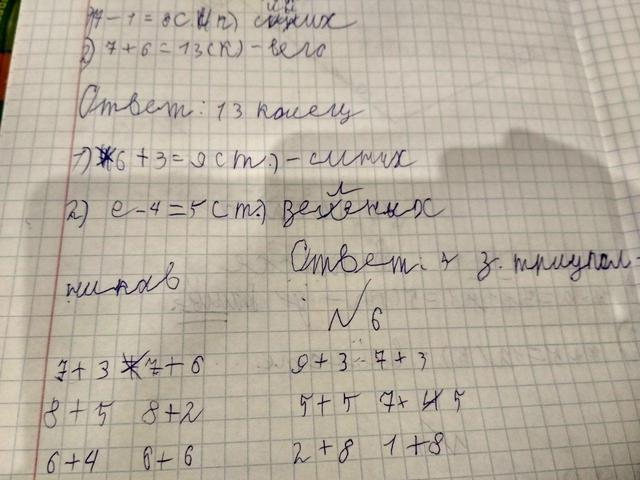 7 - 1 = 6 (к) синих
2) 7 + 6 = 13 (к) - всего
Ответ: 13 колец
1) 6 + 3 = 9 (т.) - синих
2) 9 - 4 = 5 (т.) зелёных
Ответ: з. триугол-
ников
№ 6
7 + 3 7 + 6 9 + 3 7 + 3
8 + 5 8 + 2 5 + 5 7 + 5
6 + 4 6 + 6 2 + 8 1 + 8